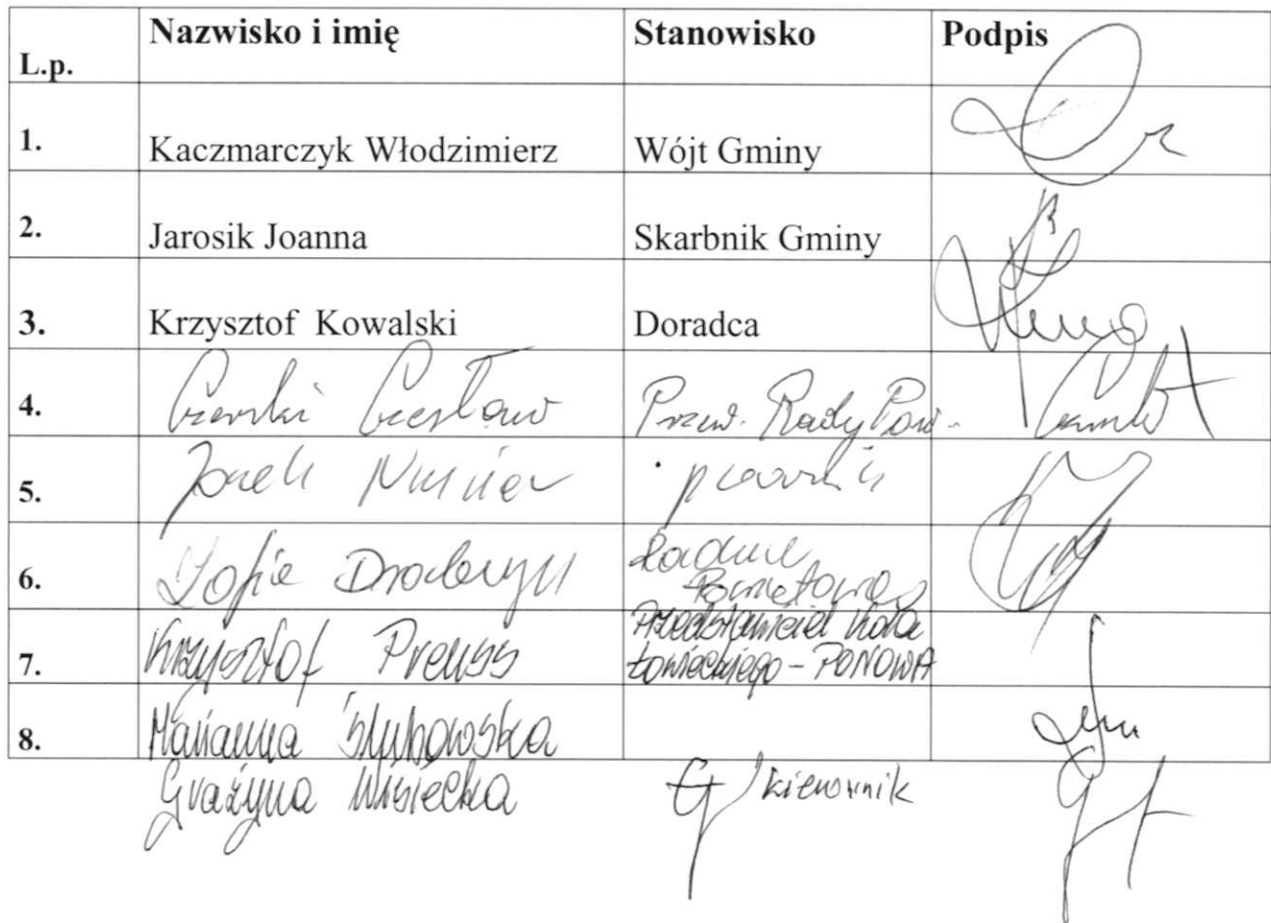 L.p. Nazwisko i imię Stanowisko Podpis
1. Kaczmarczyk Włodzimierz Wójt Gminy
2. Jarosik Joanna Skarbnik Gminy
3. Krzysztof Kowalski Doradca
4. Czerski Czesław Przew. Rady Pow.
5. Jacek
6. Zofia Radna
Powiatowa
7. Krzysztof Preuss Przedstawiciel Koła
Łowieckiego - PONOWA
8. Marianna Ślubowska
Grażyna Wisiecka kierownik